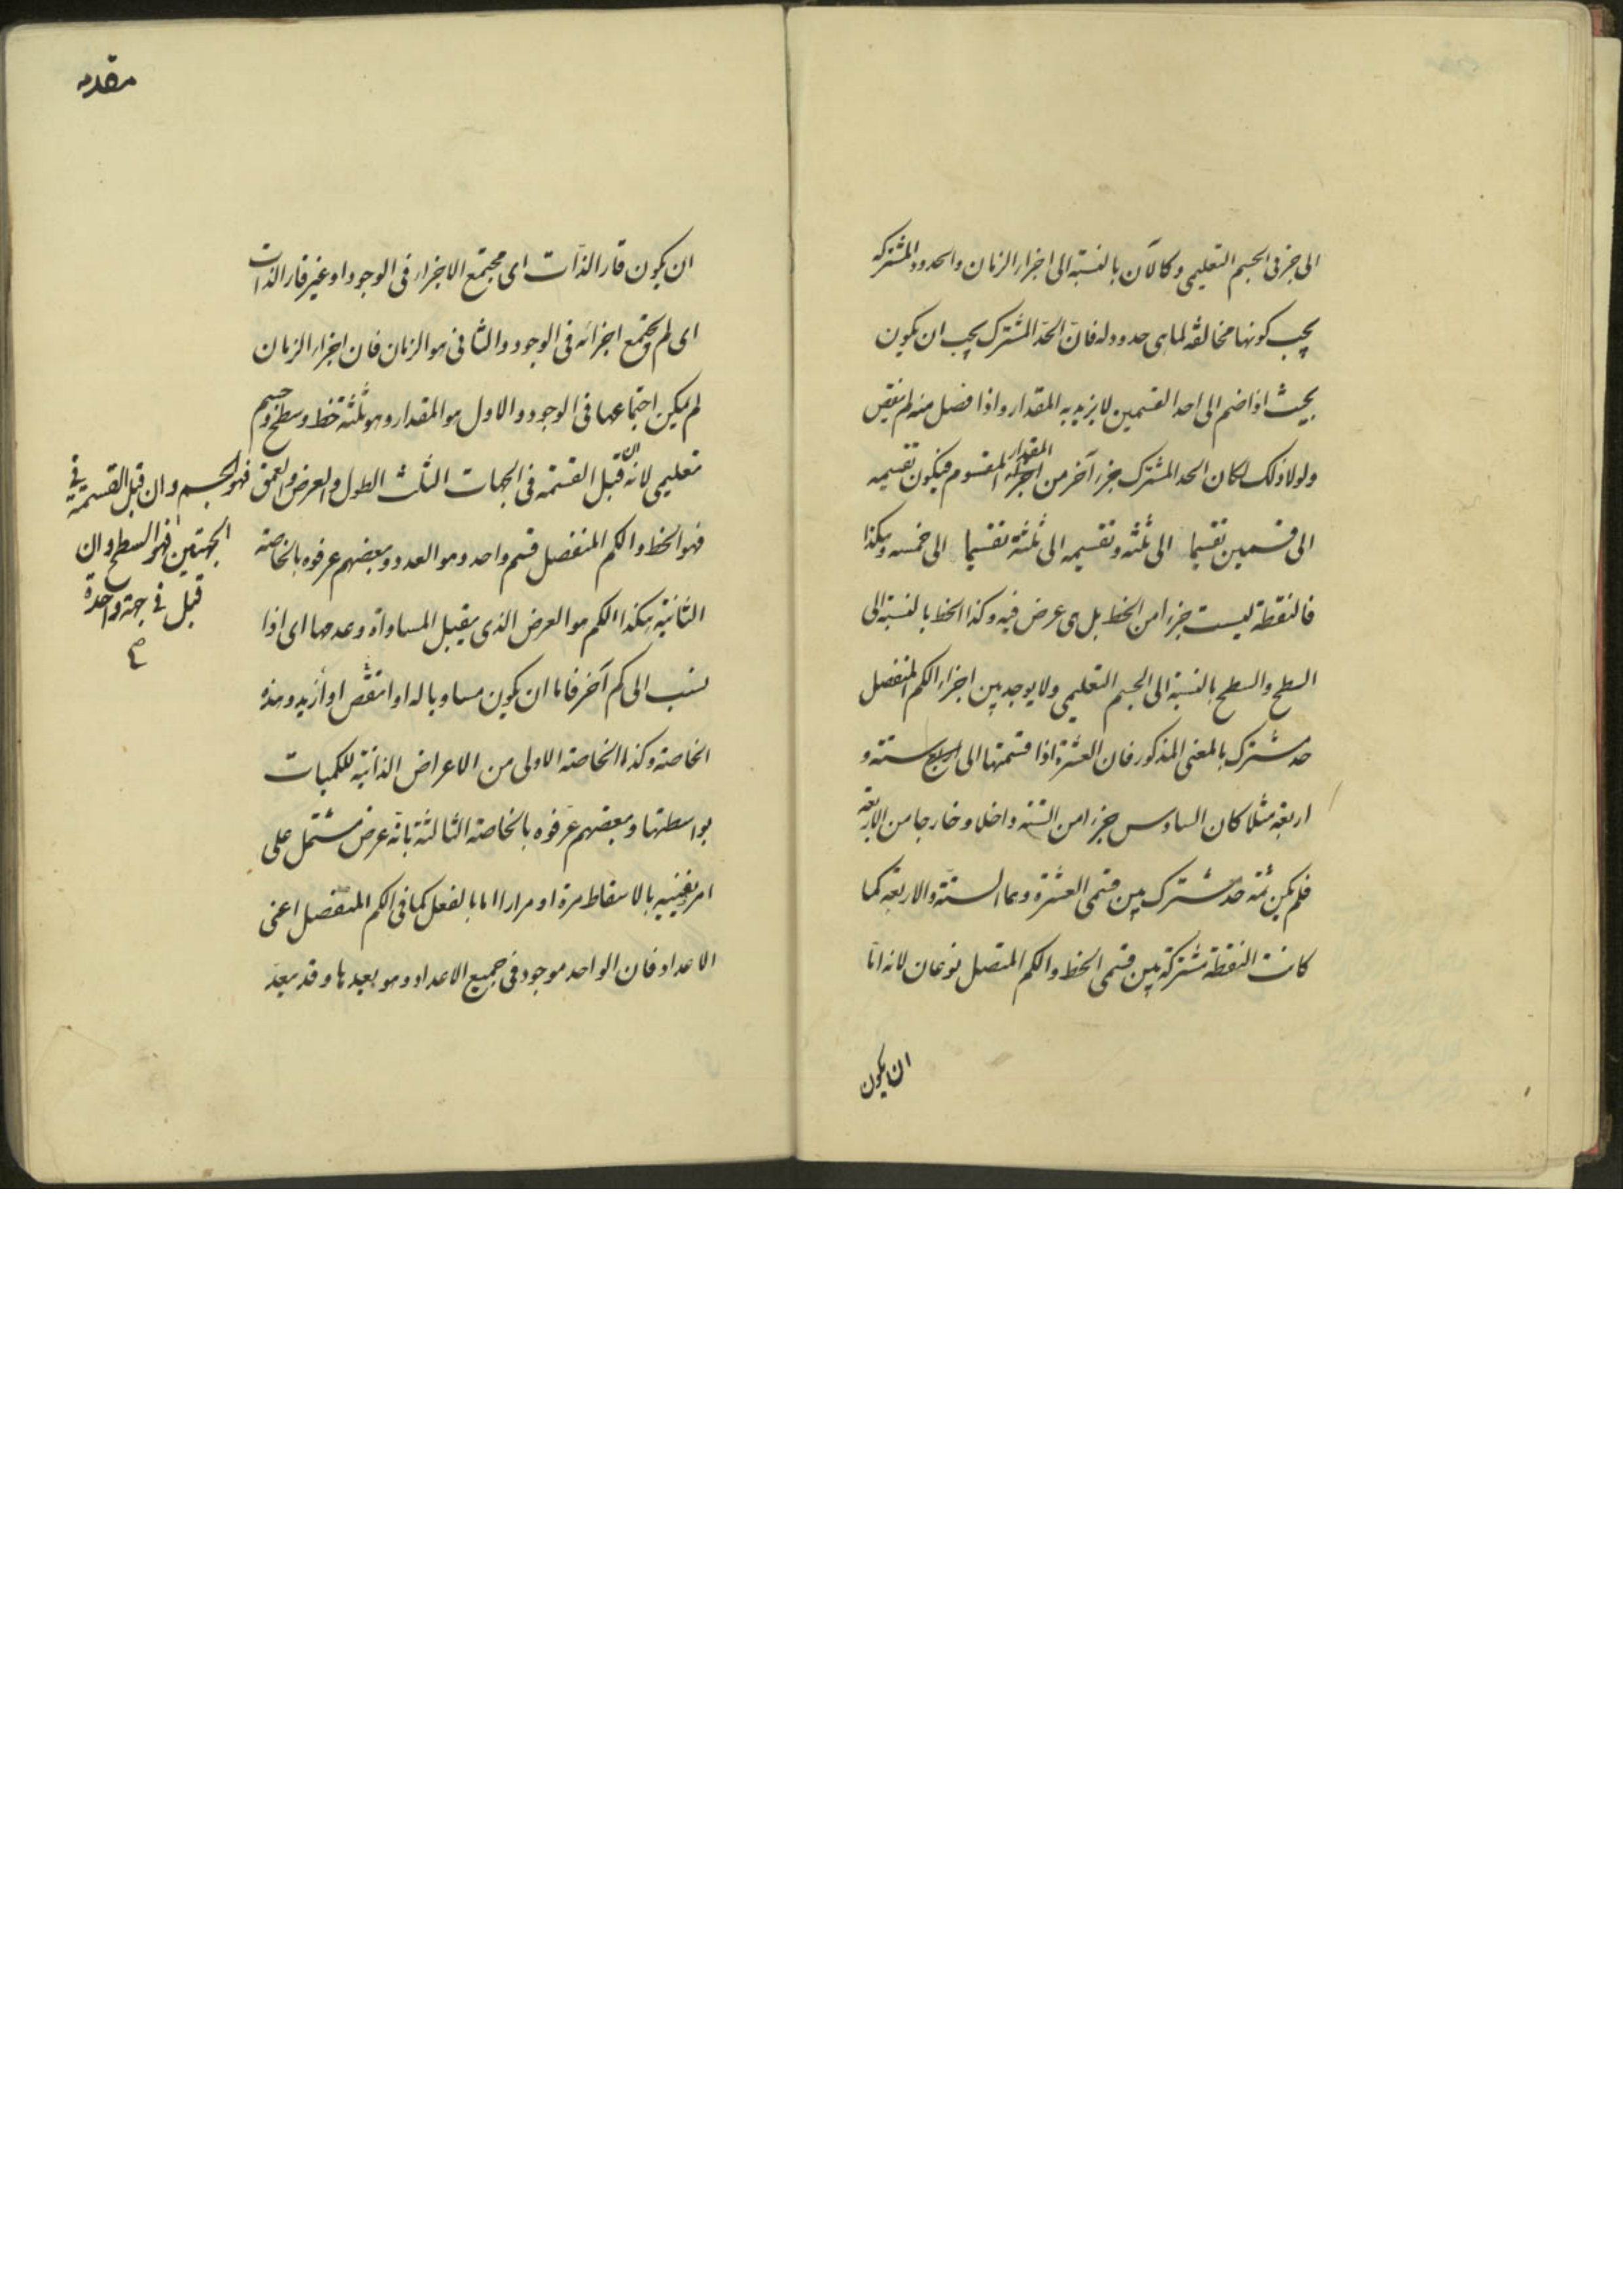 الى جزئى الجسم التعليمى وكالآن بالنسبة الى اجزاء الزمان والحدود المشتركه
يجب كونها مخالفة لما هى حدود له فانّ الحدّ المشترك يجب ان يكون
بحيث اذا ضم الى احد القسمين لا يزيد به المقدار واذا فصل منه لم ينقص
ولولا ذلك لكان الحد المشترك جزء آخر من اجزاء المقدار المقسوم فيكون تقسيمه
الى قسمين تقسيما الى ثلثه وتقسيمه الى ثلثة تقسيما الى خمسه وهكذا
فالنقطة ليست جزءا من الخط بل هى عرض فيه وكذا الخط بالنسبة الى
السطح والسطح بالنسبة الى الجسم التعليمى ولا يوجد بين اجزاء الكم المنفصل
حد مشترك بالمعنى المذكور فان العشرة اذا قسمتها الى ستة و
اربعة مثلا كان السادس جزءا من الستة داخلا وخارجا من الاربعة
فلم يكن ثمّة حدّ مشترك بين قسمى العشرة وهما الستة والاربعة كما
كانت النقطة مشتركة بين قسمى الخط والكم المتصل نوعان لانه امّا
ان يكون
مقدمه
ان يكون قار الذّات اى مجتمع الاجزاء فى الوجود او غير قار الذات
اى لم يجتمع اجزائه فى الوجود والثانى هو الزمان فان اجزاء الزمان
لم يكن اجتماعها فى الوجود والاول هو المقدار وهو ثلثة خط وسطح وجسم
تعليمى لانّه ان قبل القسمة فى الجهات الثلث الطول والعرض والعمق فهو الجسم وان قبل القسمة فى
الجهتين فهو السطح وان
قبل فى جهة واحدة
صح
فهو الخط والكم المنفصل قسم واحد وهو العدد وبعضهم عرفوه بالخاصة
الثانية هكذا الكم هو العرض الذى يقبل المساواة وعدمها اى اذا
نسب الى كم آخر فاما ان يكون مساويا له او انقص او أزيد وهذه
الخاصة وكذا الخاصة الاولى من الاعراض الذاتية للكميات
بواسطتها وبعضهم عرّفوه بالخاصة الثالثة بانّه عرض مشتمل على
امر يفنيه بالاسقاط مرة او مرارا اما بالفعل كما فى الكم المنفصل اعنى
الاعداد فان الواحد موجود فى جميع الاعداد وهو يعدها وقد يعدّ